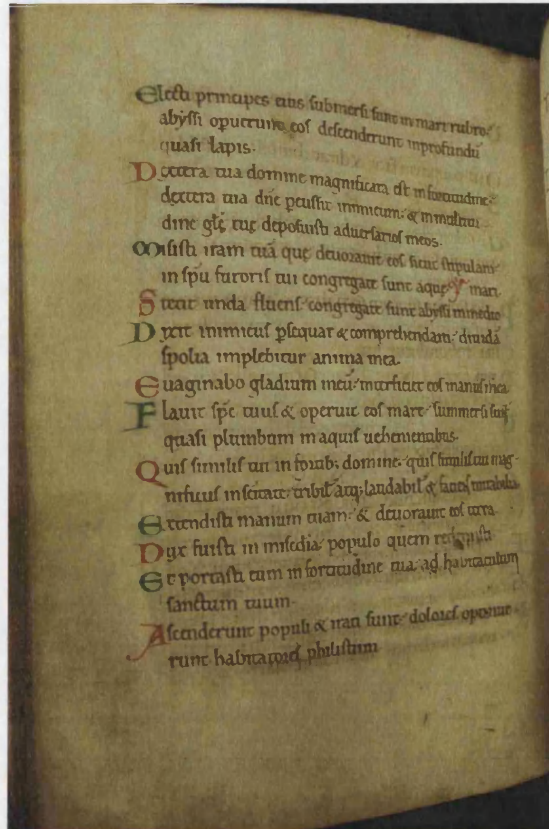 Electi principes eius submersi sunt in mari rubro:
abyssi operuerunt eos descenderunt inprofundū
quasi lapis.
Dextera tua domine magnificata est infortitudine:
dextera tua dn̄e p̄cussit inimicum: & inmultitu
dine glę tuę deposuisti adversarios meos.
Misisti iram tuā quę devoravit eos sicut stipulam
in sp̄u furoris tui congregatę sunt aquę
Stetit unda fluens: congregatę sunt abyssi inmedio mari.
Dixit inimicus p̄sequar & comprehendam: dividā
spolia implebitur anima mea.
Evaginabo gladium meū: interficiet eos manus mea
Flavit sp̄c tuus & operuit eos mare: summersi sunt
quasi plumbum in aquis vehementibus.
Quis similis tui in fortib; domine: quis similis tui mag
nificus inscitate: tribil atq; laudabil & faciens mirabilia
Extendisti manum tuam: & devoravit eos terra
Dux fuisti in misc̄dia: populo quem redemisti
Et portasti eum in fortitudine tua: ad habitaculum
sanctum tuum.
Ascenderunt populi & irati sunt: dolores optinue
runt habitatores philistiim